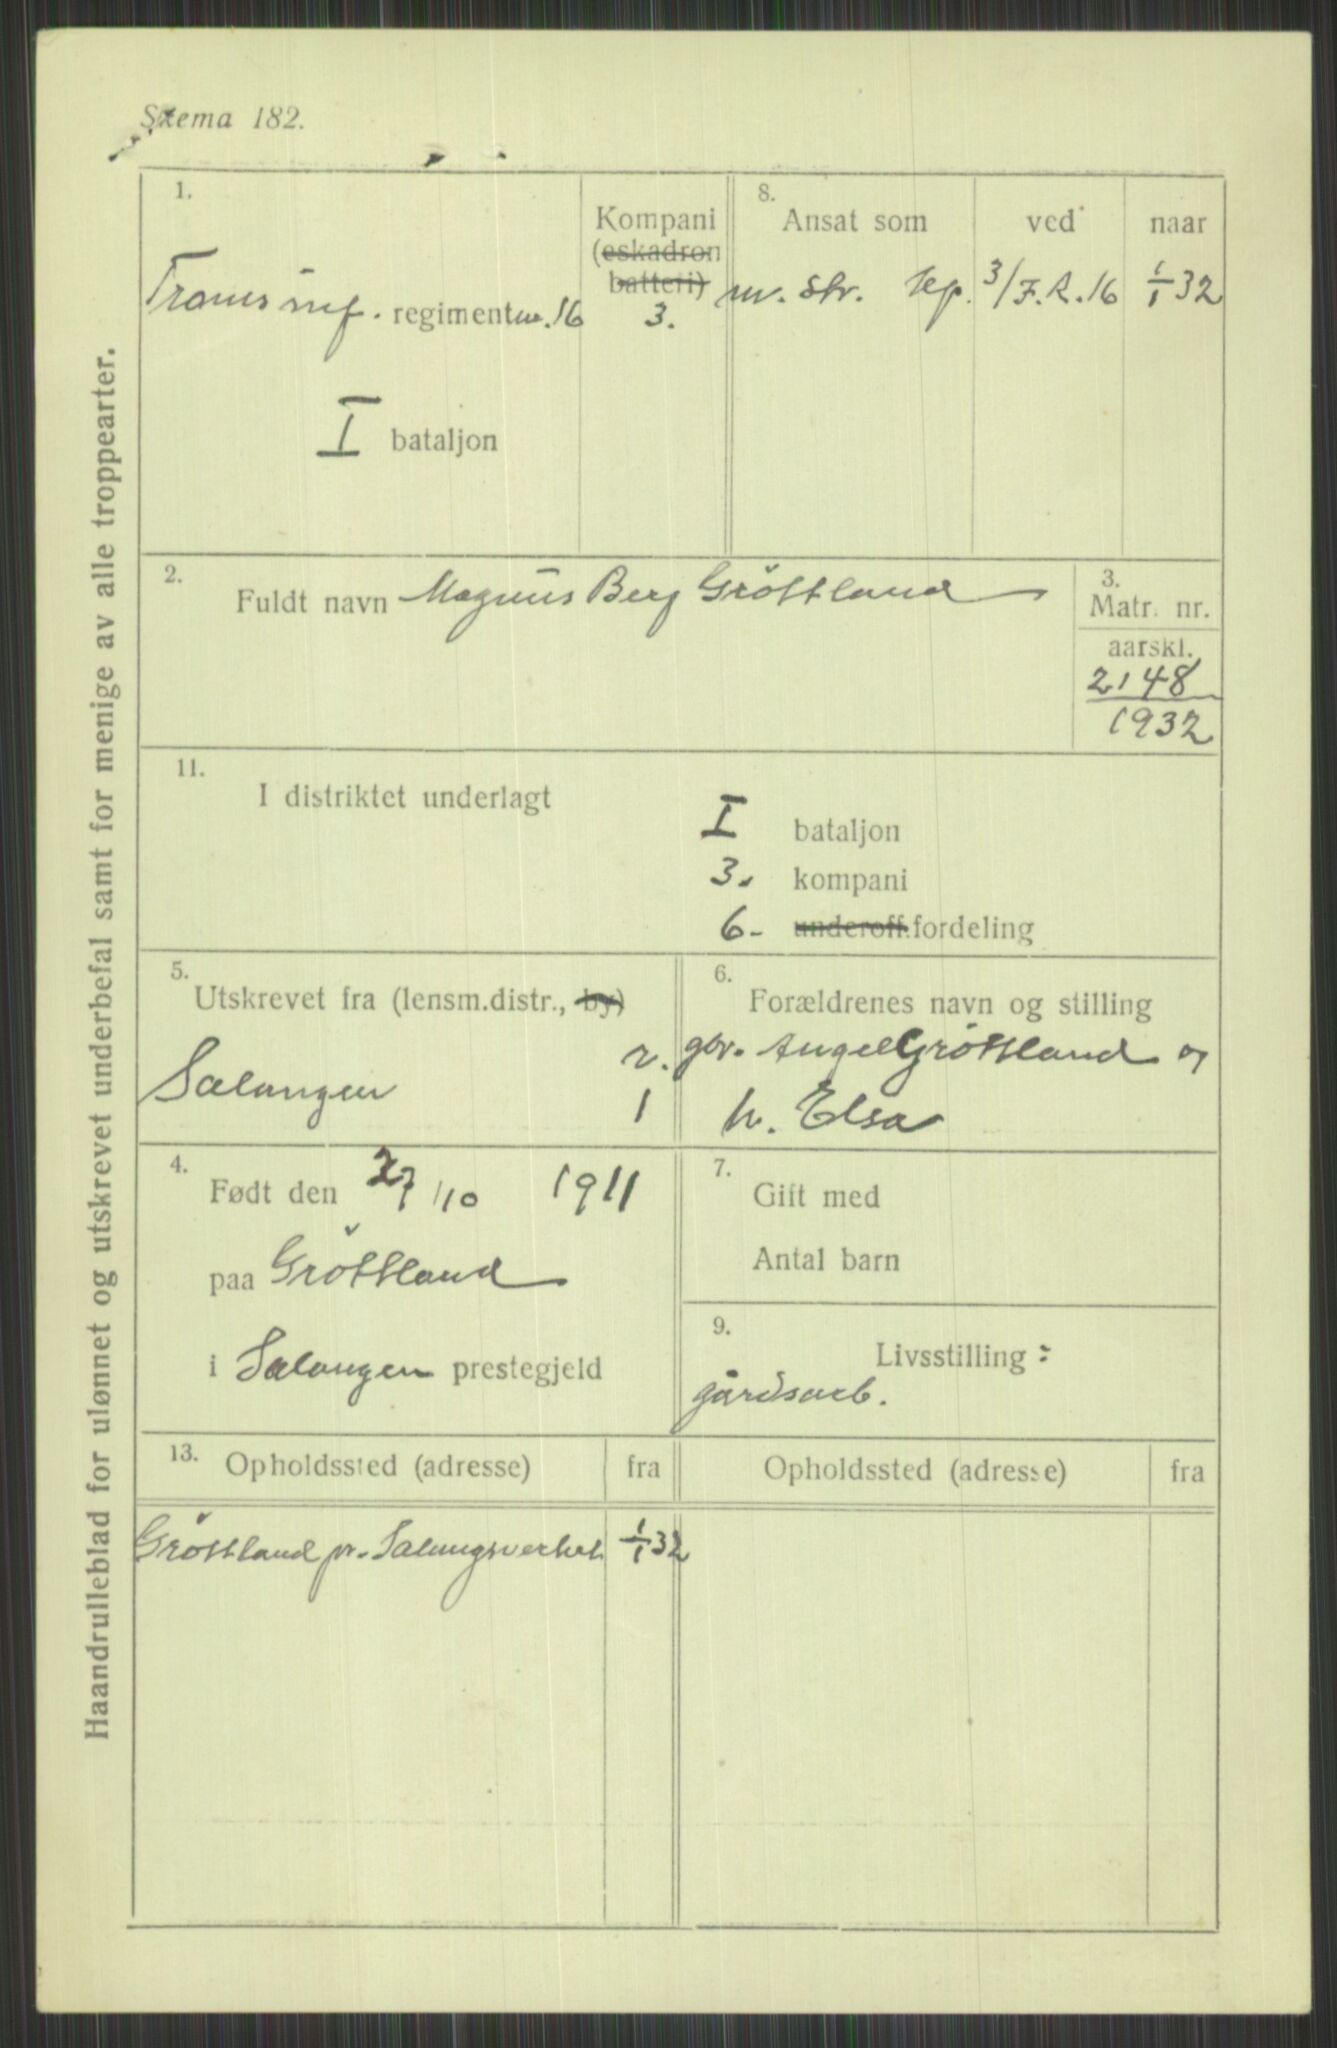 Skema 182.
Haandrulleblad for ulønnet og utskrevet underbefal samt for menige av alle troppearter.
1.
Troms inf. regiment nr. 16
I bataljon
Kompani
(eskadron
batteri)
3.
8.
Ansat som
ved
naar
3/F.R.16
1/1 32
2.
Fuldt navn Magnus Berg Gröttland
3.
Matr. nr.
aarskl.
2148
1932
11.
I distriktet underlagt
I bataljon
3. kompani
6- underoff.fordeling
5.
Utskrevet fra (lensm.distr., by)
Salangen
r.
1
6.
Forældrenes navn og stilling
gbr. Angel Gröttland og
h. Elsa
4.
Født den 27/10 1911
paa Gröttland
i Salangen prestegjeld
7.
Gift med
Antal barn
9.
Livsstilling :
gårdsarb.
13.
Opholdssted (adresse)
fra
Opholdssted (adresse)
fra
Gröttland pr. Salangsverket 1/1 32